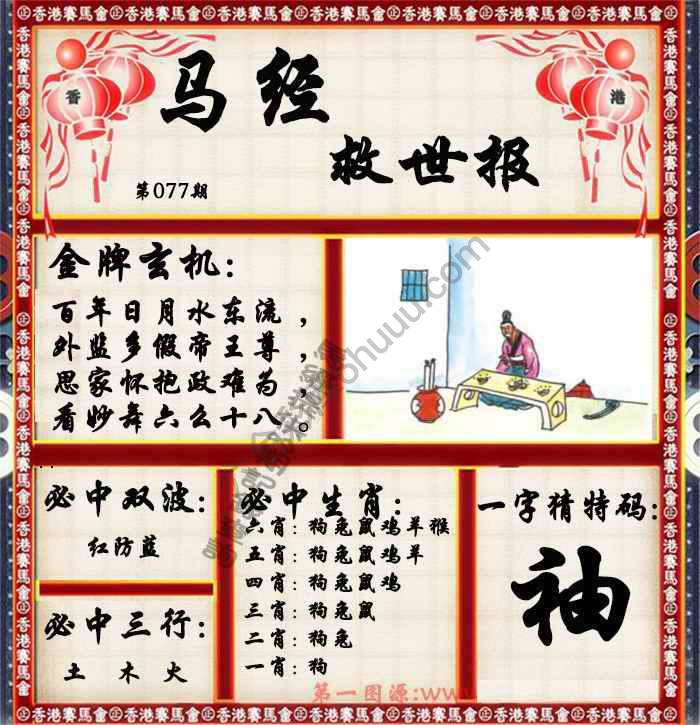 香港賽馬會
香
港
马经
救世报
第077期
金牌玄机：
百年日月水东流，
外监多假帝王尊，
思家怀抱政难为，
看妙舞六么十八。
必中双波：
红防蓝
必中三行：
土 木 火
必中生肖：
六肖：狗兔鼠鸡羊猴
五肖：狗兔鼠鸡羊
四肖：狗兔鼠鸡
三肖：狗兔鼠
二肖：狗兔
一肖：狗
一字猜特码：
袖
第一图源:www